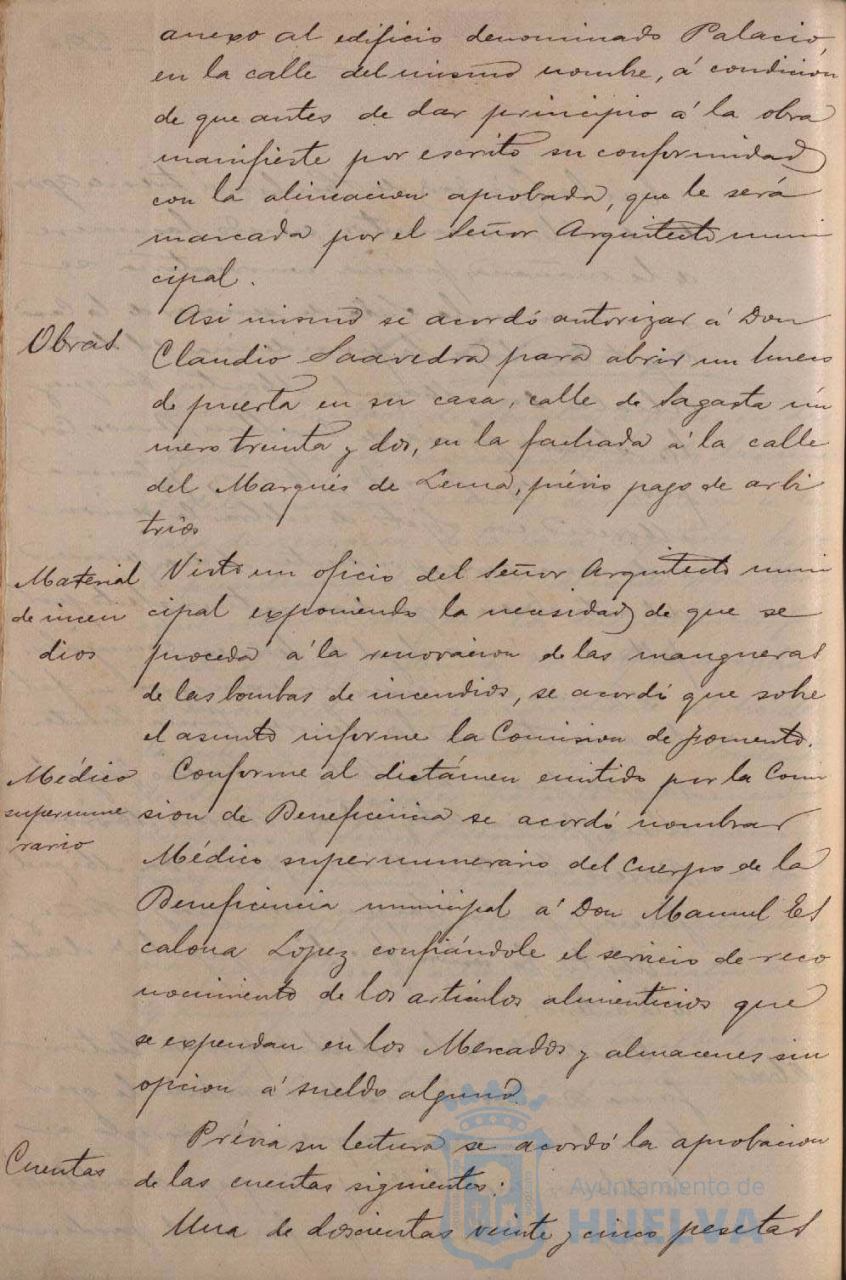 anexo al edificio denominado Palacio
en la calle del mismo nombre, á condición
de que antes de dar principio á la obra
manifieste por escrito su conformidad
con la alineacion aprobada, que le será
marcada por el Señor Arquitecto muni
cipal.
Obras.
Asi mismo se acordó autorizar á Don
Claudio Saavedra para abrir un hueco
de puerta en su casa, calle de Sagasta nú
mero treinta y dos, en la fachada á la calle
del Marqués de Lema, prévio pago de arbi
trios
Material
de incen
dios
Visto un oficio del Señor Arquitecto muni
cipal exponiendo la necesidad de que se
proceda á la renovacion de las mangueras
de las bombas de incendios, se acordó que sobre
el asunto informe la Comision de Fomento.
Médico
supernume
rario
Conforme al dictámen emitido por la Comi
sion de Beneficencia se acordó nombrar
Médico supernumerario del Cuerpo de la
Beneficencia municipal á Don Manuel Es
calona Lopez confiándole el servicio de reco
nocimiento de los artículos alimenticios que
se expendan en los Mercados y almacenes sin
opcion á sueldo alguno.
Cuentas
Prévia su lectura se acordó la aprobacion
de las cuentas siguientes:
Una de doscientas veinte y cinco pesetas
Ayuntamiento de
HUELVA